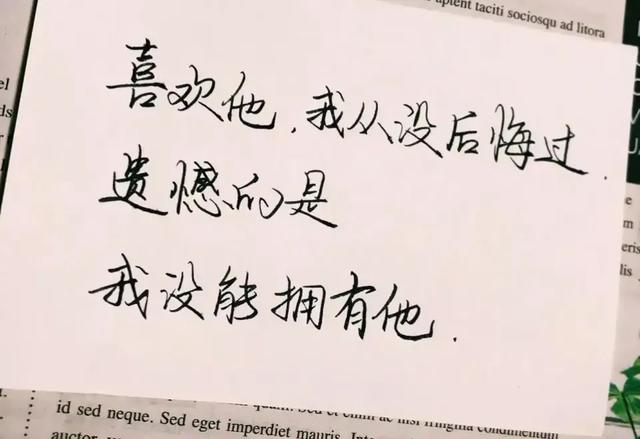 aptent taciti sociosqu ad litora
喜欢他.我从没后悔过.
遗憾的是
我没能拥有他.
id sed neque. Sed eget imperdiet mauris.